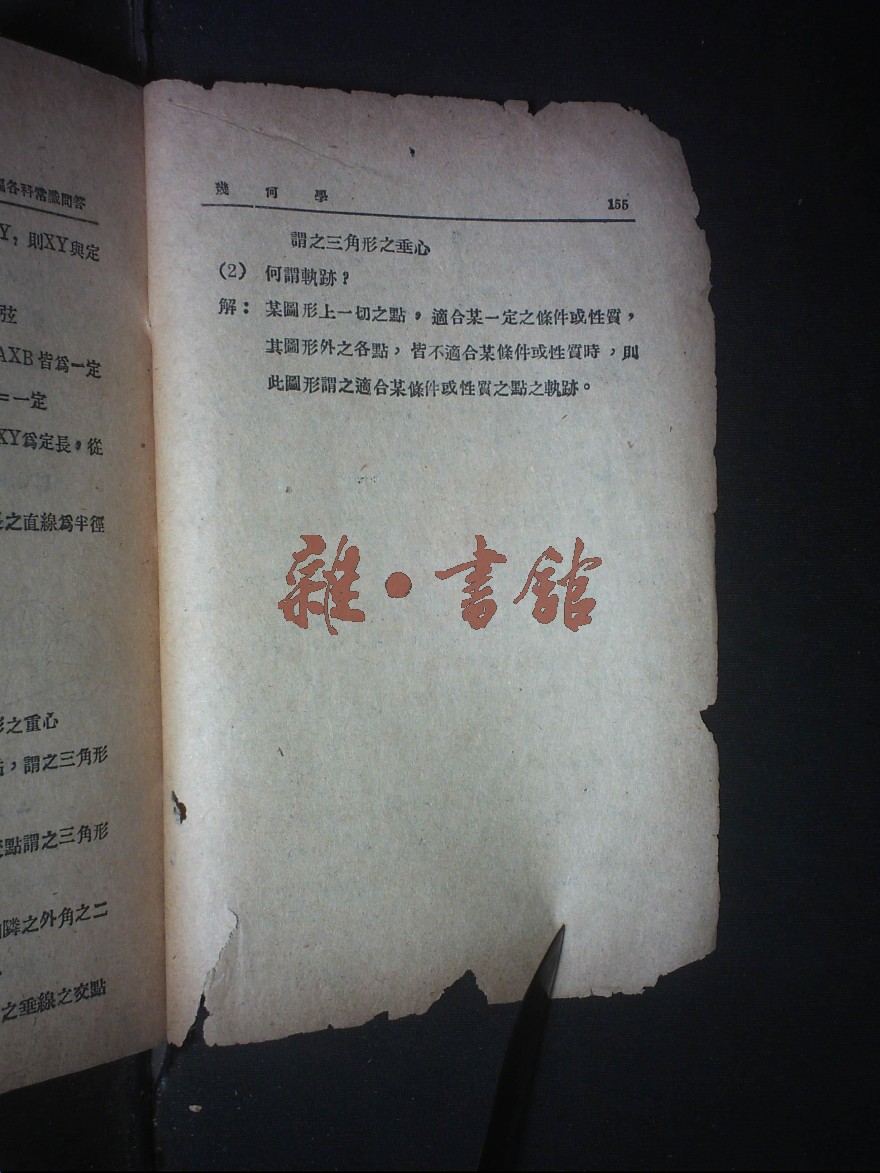 各科常識問答
Y，則XY與定
弦
AXB皆爲一定
=一定
XY爲定長，從
之直線爲半徑
之重心
，謂之三角形
點謂之三角形
隣之外角之二
之垂線之交點
幾何學 155
謂之三角形之垂心
(2) 何謂軌跡？
解：某圖形上一切之點，適合某一定之條件或性質，
其圖形外之各點，皆不適合某條件或性質時，則
此圖形謂之適合某條件或性質之點之軌跡。
雜·書館